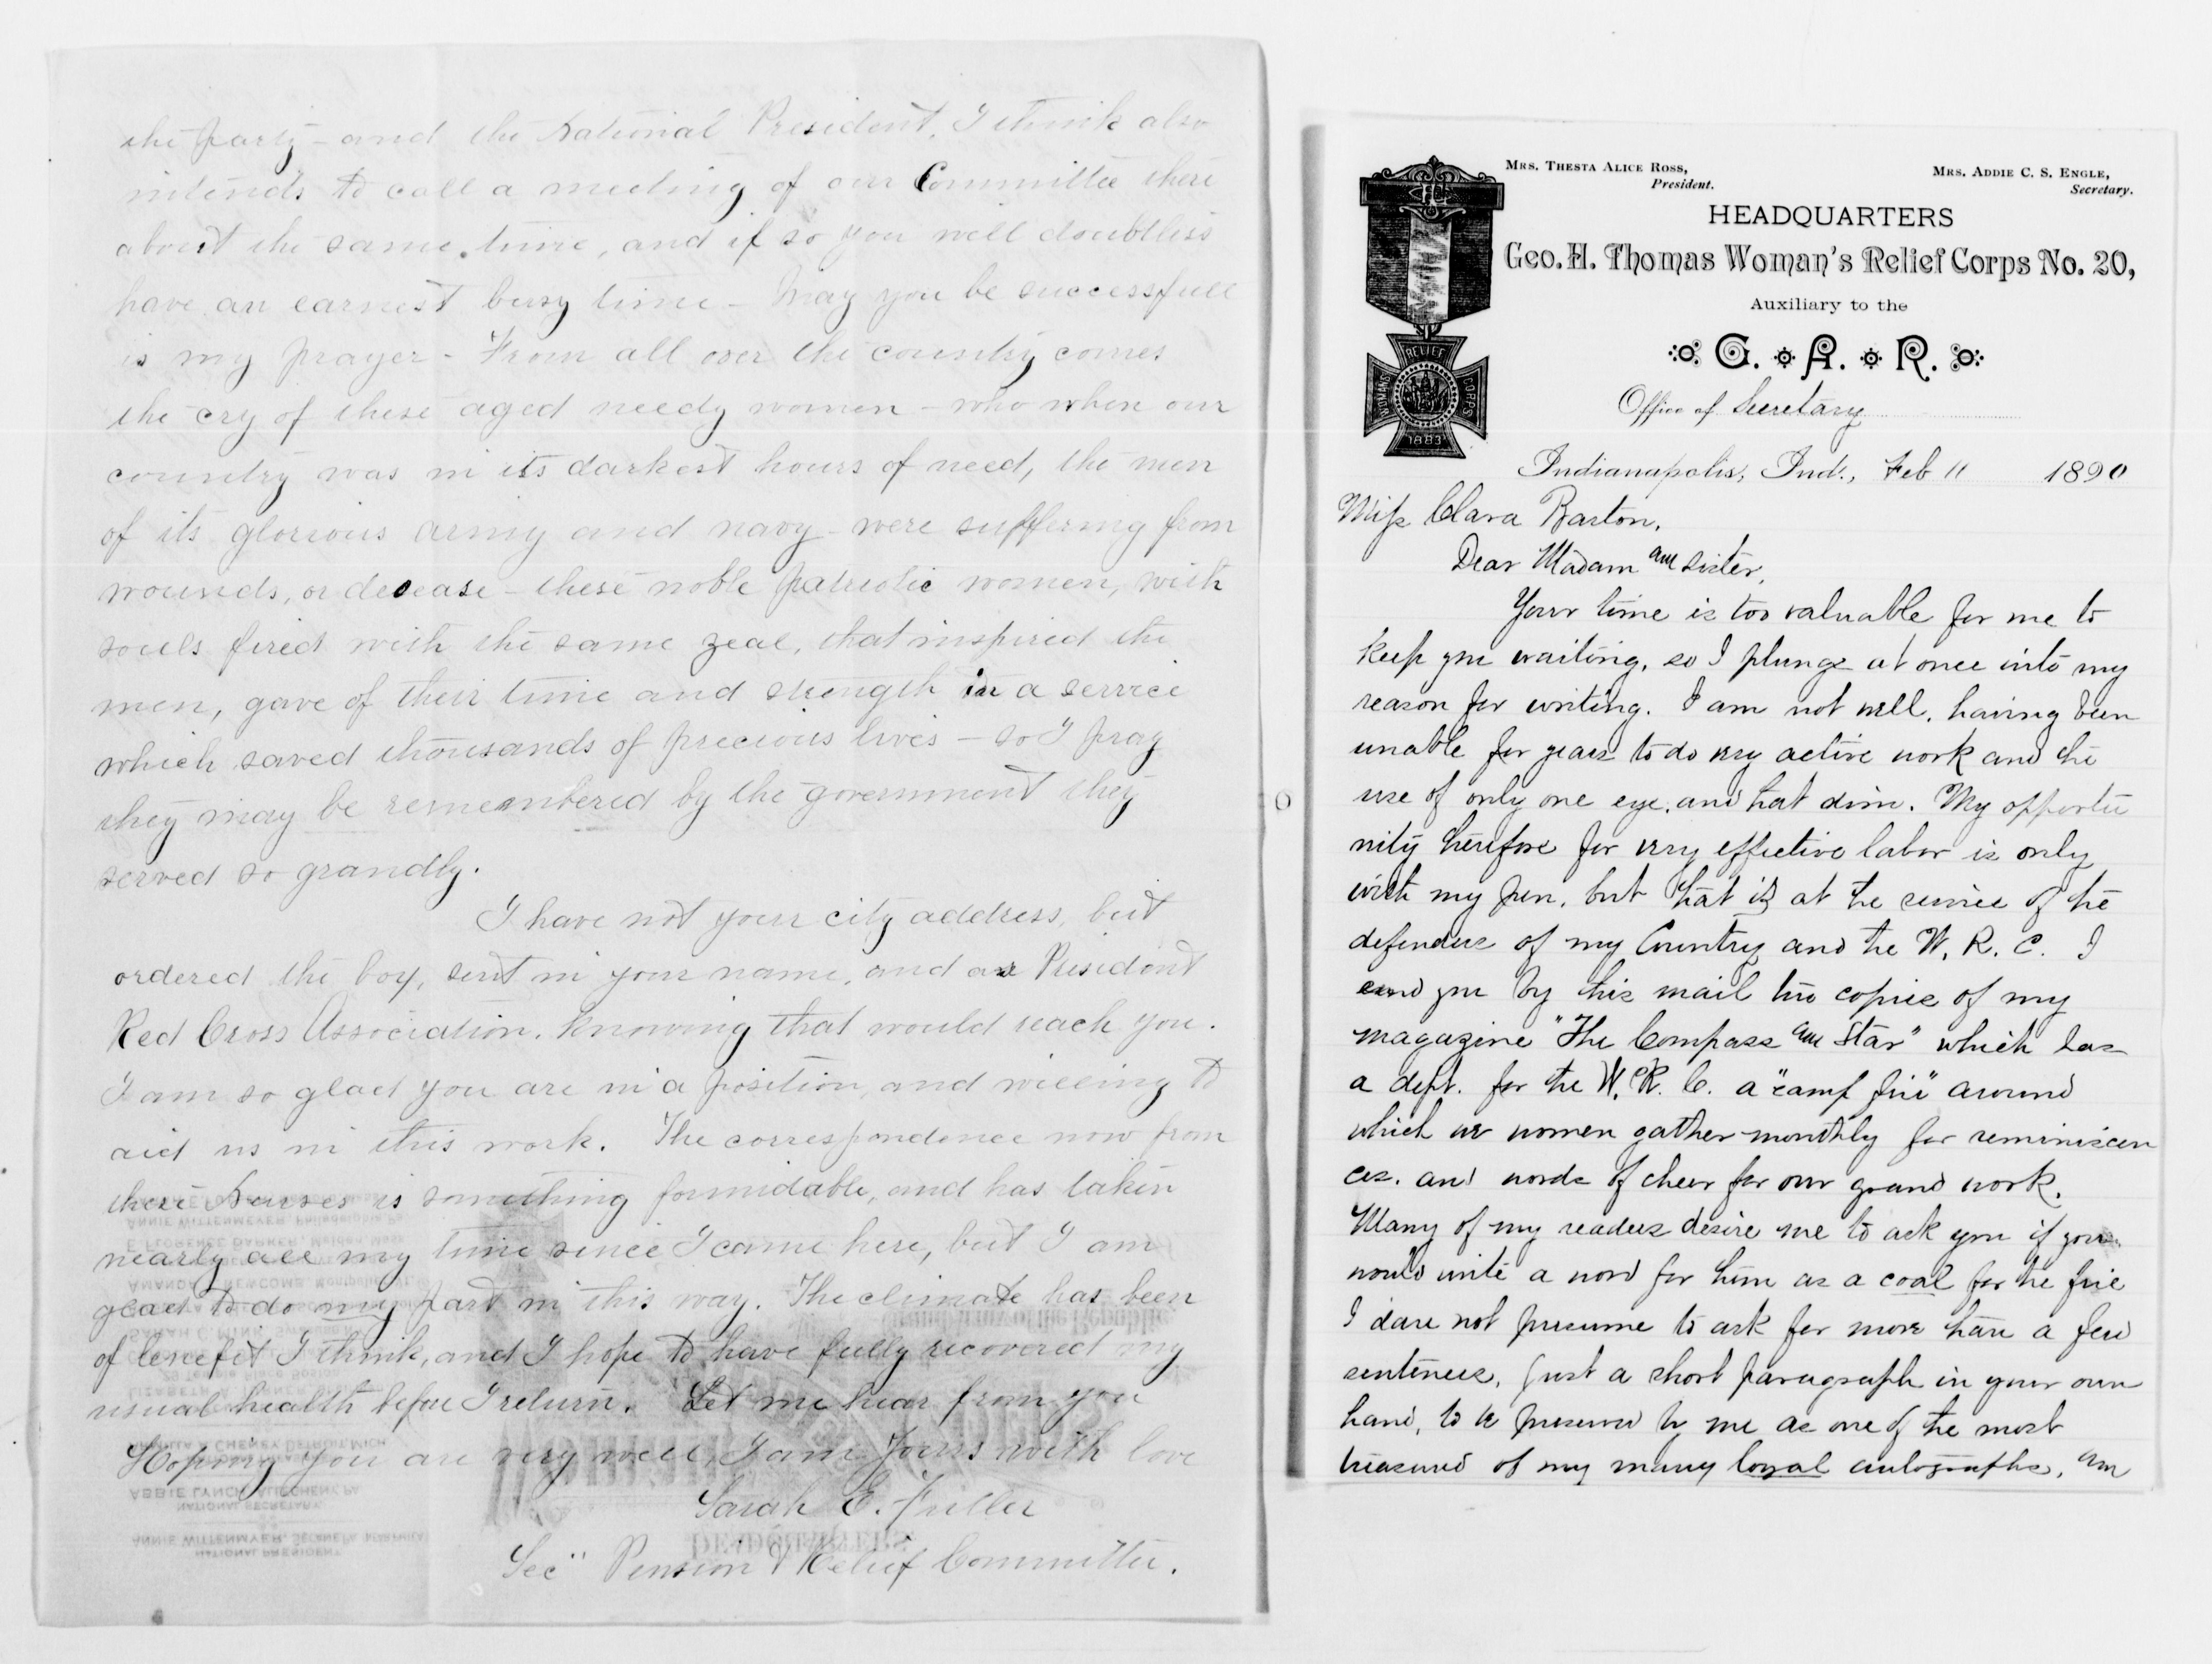 the party - and the National President, I think also
intends to call a meeting of our Committee there
about the same time, and if so you will doubtless
have an earnest busy time - May you be successfull
is my prayer - From all over the country comes
the cry of these aged needy women - who when our
country was in its darkest hours of need, the men
of its glorious army and navy - were suffering from
wounds, or desease - these noble patriotic women, with
souls fired with the same zeal, that inspired the
men, gave of their time and strength in a service
which saved thousands of precious lives - so I pray
they may be remembered by the government they
served so grandly.
I have not your city address, but
ordered the boy, sent in your name, and as President
Red Cross Association, knowing that would reach you.
I am so glad you are in a position, and willing to
aid us in this work. The correspondence now from
these Nurses is something formidable, and has taken
nearly all my time since I came here, but I am
glad to do my part in this way. The climate has been
of benefit I think, and I hope to have fully recovered my
usual health before I return. Let me hear from you
Hoping you are very well, I am Yours with love
Sarah E. Fuller
Sec" Pension & Relief Committee.
Mrs. Thesta Alice Ross,
President.
Mrs. Addie C. S. Engle,
Secretary.
HEADQUARTERS
Geo. H. Thomas Woman's Relief Corps No. 20,
Auxiliary to the
G. A. R.
Office of Secretary
Indianapolis, Ind., Feb 11 1890
WOMANS RELIEF CORPS
1883
Miss Clara Barton,
Dear Madam and sister,
Your time is too valuable for me to
keep you waiting, so I plunge at once into my
reason for writing. I am not well, having been
unable for years to do very active work and the
use of only one eye, and that dim. My opportu
nity therefore for very effective labor is only
with my pen, but that is at the service of the
defenders of my Country and the W. R. C. I
send you by this mail two copies of my
magazine "The Compass and Star" which has
a dept. for the W. R. C. a "camp fire" around
which we women gather monthly for reminiscen
ces, and words of cheer for our grand work.
Many of my readers desire me to ask you if you
would write a word for them as a coal for the fire
I dare not presume to ask for more than a few
sentences, just a short paragraph in your own
hand, to be preserved by me as one of the most
treasured of my many loyal autographs, and